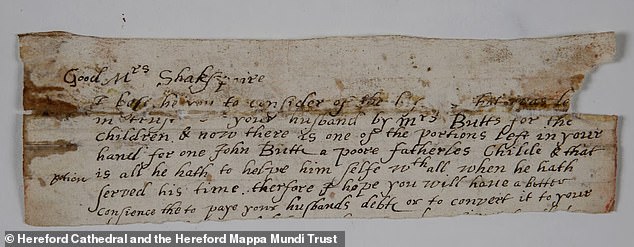 Good Mrs Shakspaire
I beseche you to consider of the
in truse your husband by mrs Butts for the
children & now there is one of the portions left in your
hand for one John Butt a poore fatherles Childe & that
is all he hath to helpe him selfe wth all when he hath
served his time therfore I hope you will have a better
consience the to paye your husbands debts or to convert it to your
© Hereford Cathedral and the Hereford Mappa Mundi Trust